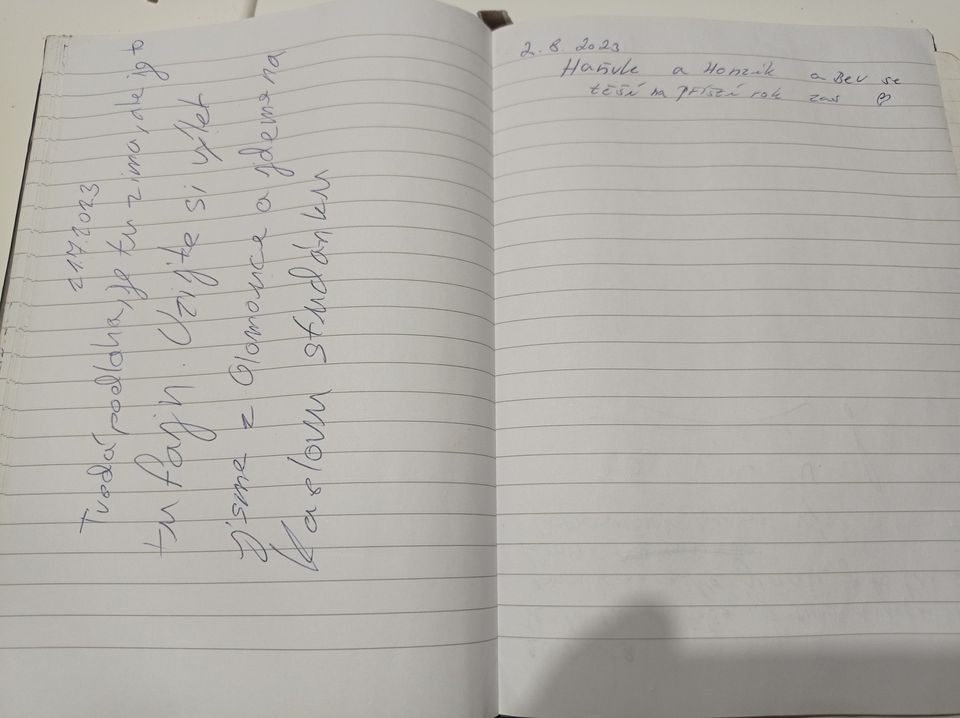 21.7.2023
Tvrdá podlaha, je tu zima, ale je to
tu fajn. Užijte si výlet
Jsme z Olomouce a jdeme na
Karlovu studánku
2. 8. 2023
Hanule a Honzík a Bev se
těší na příští rok zas ♡